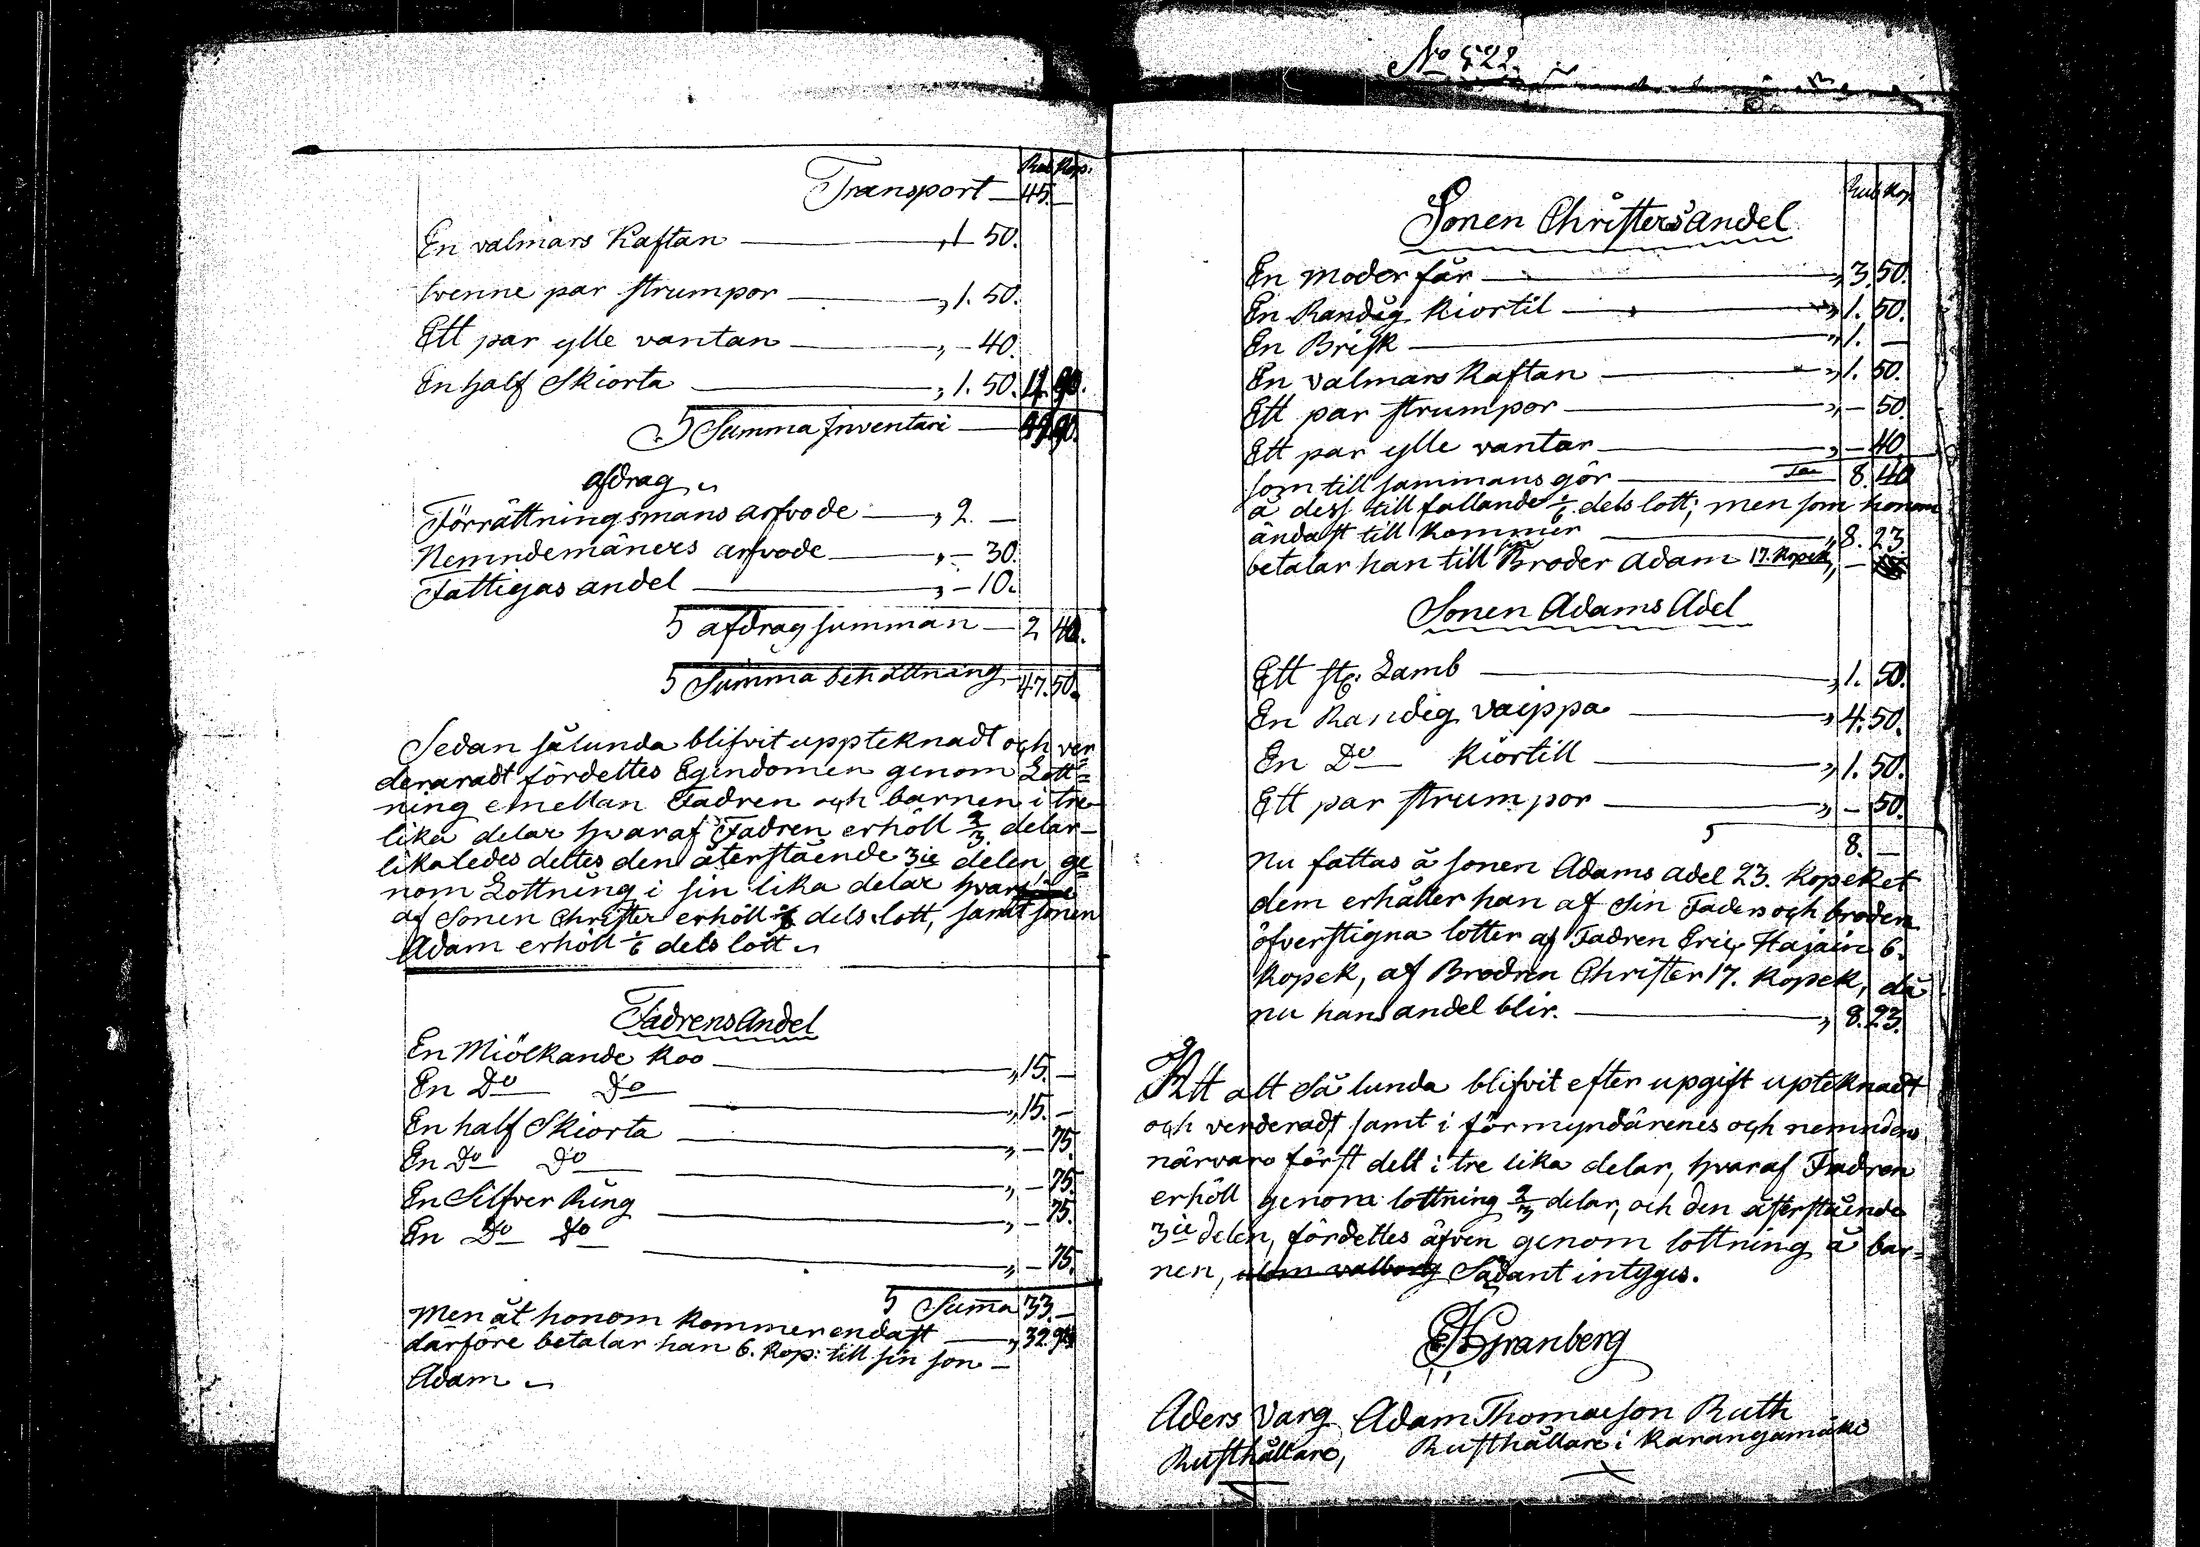 Rub Kop:
Transport — 45. —
En valmars Kaftan — „ 1 50.
tvenne par strumpor — „ 1. 50.
Ett par ylle vantan — „ — 40.
En half Skiorta — „ 1. 50. 4. 90.
S Summa Inventari — 49. 90.
afdrag
Förrättningsmans arfvode — „ 2. —
Nemndemäners arfvode — „ — 30.
Fattigas andel — „ — 10.
S afdrag summan — 2 40.
S Summa behållning 47. 50.
Sedan sålunda blifvit uppteknadt och ver
deraradt fördeltes Egendomen genom Lott=
ning emellan Fadren och barnen i tre
lika delar hvaraf Fadren erhöll 2/3 delar —
likaledes deltes den återstående 3ie delen, ge=
nom Lottning i sin lika delar hvar
af Sonen Christer erhöll 1/6 dels lott, samt sonen
Adam erhöll 1/6 dels lott
Fadrens Andel
En Miölkande Koo — „ 15. —
En Do Do — „ 15. —
En half Skiorta — „ — 75.
En Do Do — „ — 75
En Silfver Ring — „ — 75.
En Do Do — „ — 75.
S Suma 33. —
men åt honom kommer endast — „ 32. 94
därföre betalar han 6. Kop: till sin son —
Adam
No 522.
Rub Kop
Sonen Christers andel
En moder får — „ 3. 50.
En Randig Kiortil — „ 1. 50.
En Brisk — „ 1. —
En valmars Kaftan — „ 1. 50.
Ett par strumpor — „ — 50.
Ett par ylle vantar — „ — 40
som till sammans gör — 8. 40
å dess till fallande 1/6 dels lott; men som honom
ändast till kommer — „ 8. 23.
betalar han till sin Broder Adam 17. Kopek „ —
Sonen Adams Adel
Ett st: Lamb — „ 1. 50.
En Randig vaippa — „ 4. 50.
En Do Kiortill — „ 1. 50.
Ett par strumpor — „ — 50.
S 8. —
nu fattas å sonen Adams adel 23. Kopeket
dem erhåller han af Sin Faders och broden
öfverstigna lotter af Fadren Eric Hajain 6.
Kopek, af Brodren Christer 17. Kopek, då
nu hans andel blir. — „ 8. 23.
Att alt Så lunda blifvit efter upgift upteknadt
och verderadt samt i förmyndärenes och nemndens
närvaro först delt i tre lika delar, hvaraf Fadren
erhöll genom lottning 2/3 delar, och den återstående
3ie delen, fördeltes äfven genom lottning å bar=
nen, Sådant intygis.
Granberg
Aders Varg Adam Thomasson Ruth
Rusthållare, Rusthållare i Karangamäki